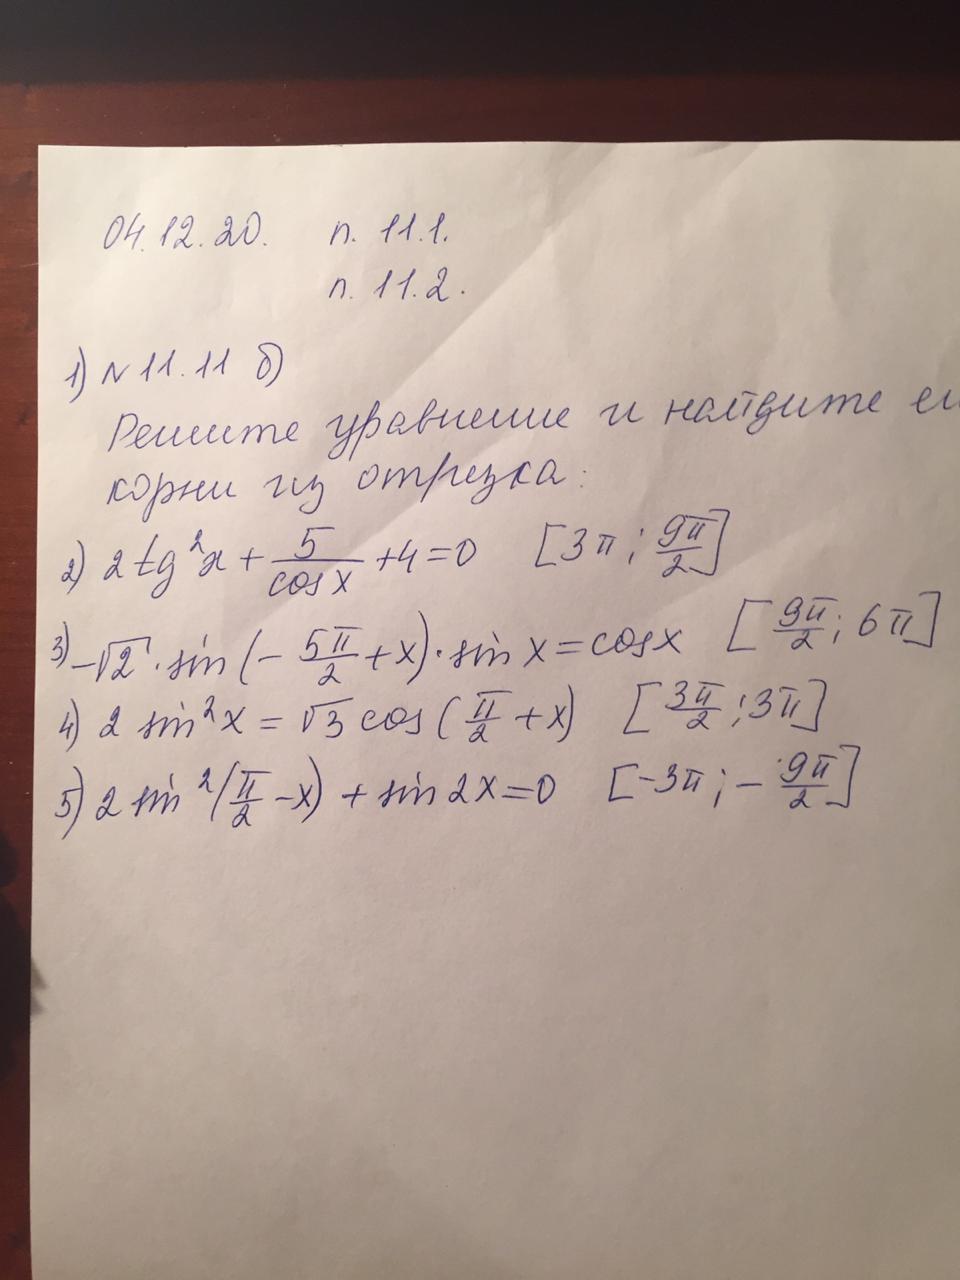 04.12.20. п. 11.1.
п. 11.2.
1) N 11.11 б)
Решите уравнение и найдите
корни из отрезка:
2) 2 tg²x + 5/cos x + 4 = 0 [3π ; 9π/2]
3) -√2 · sin(-5π/2 + x) · sin x = cos x [9π/2 ; 6π]
4) 2 sin²x = √3 cos(π/2 + x) [3π/2 ; 3π]
5) 2 sin²(π/2 - x) + sin 2x = 0 [-3π ; -9π/2]